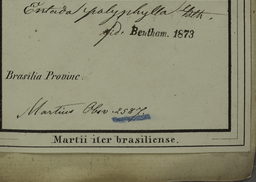 Entada polyphylla Bth.
fid. Bentham. 1873
Brasilia Provinc.
Martius Obs. 2587.
Martii iter brasiliense.